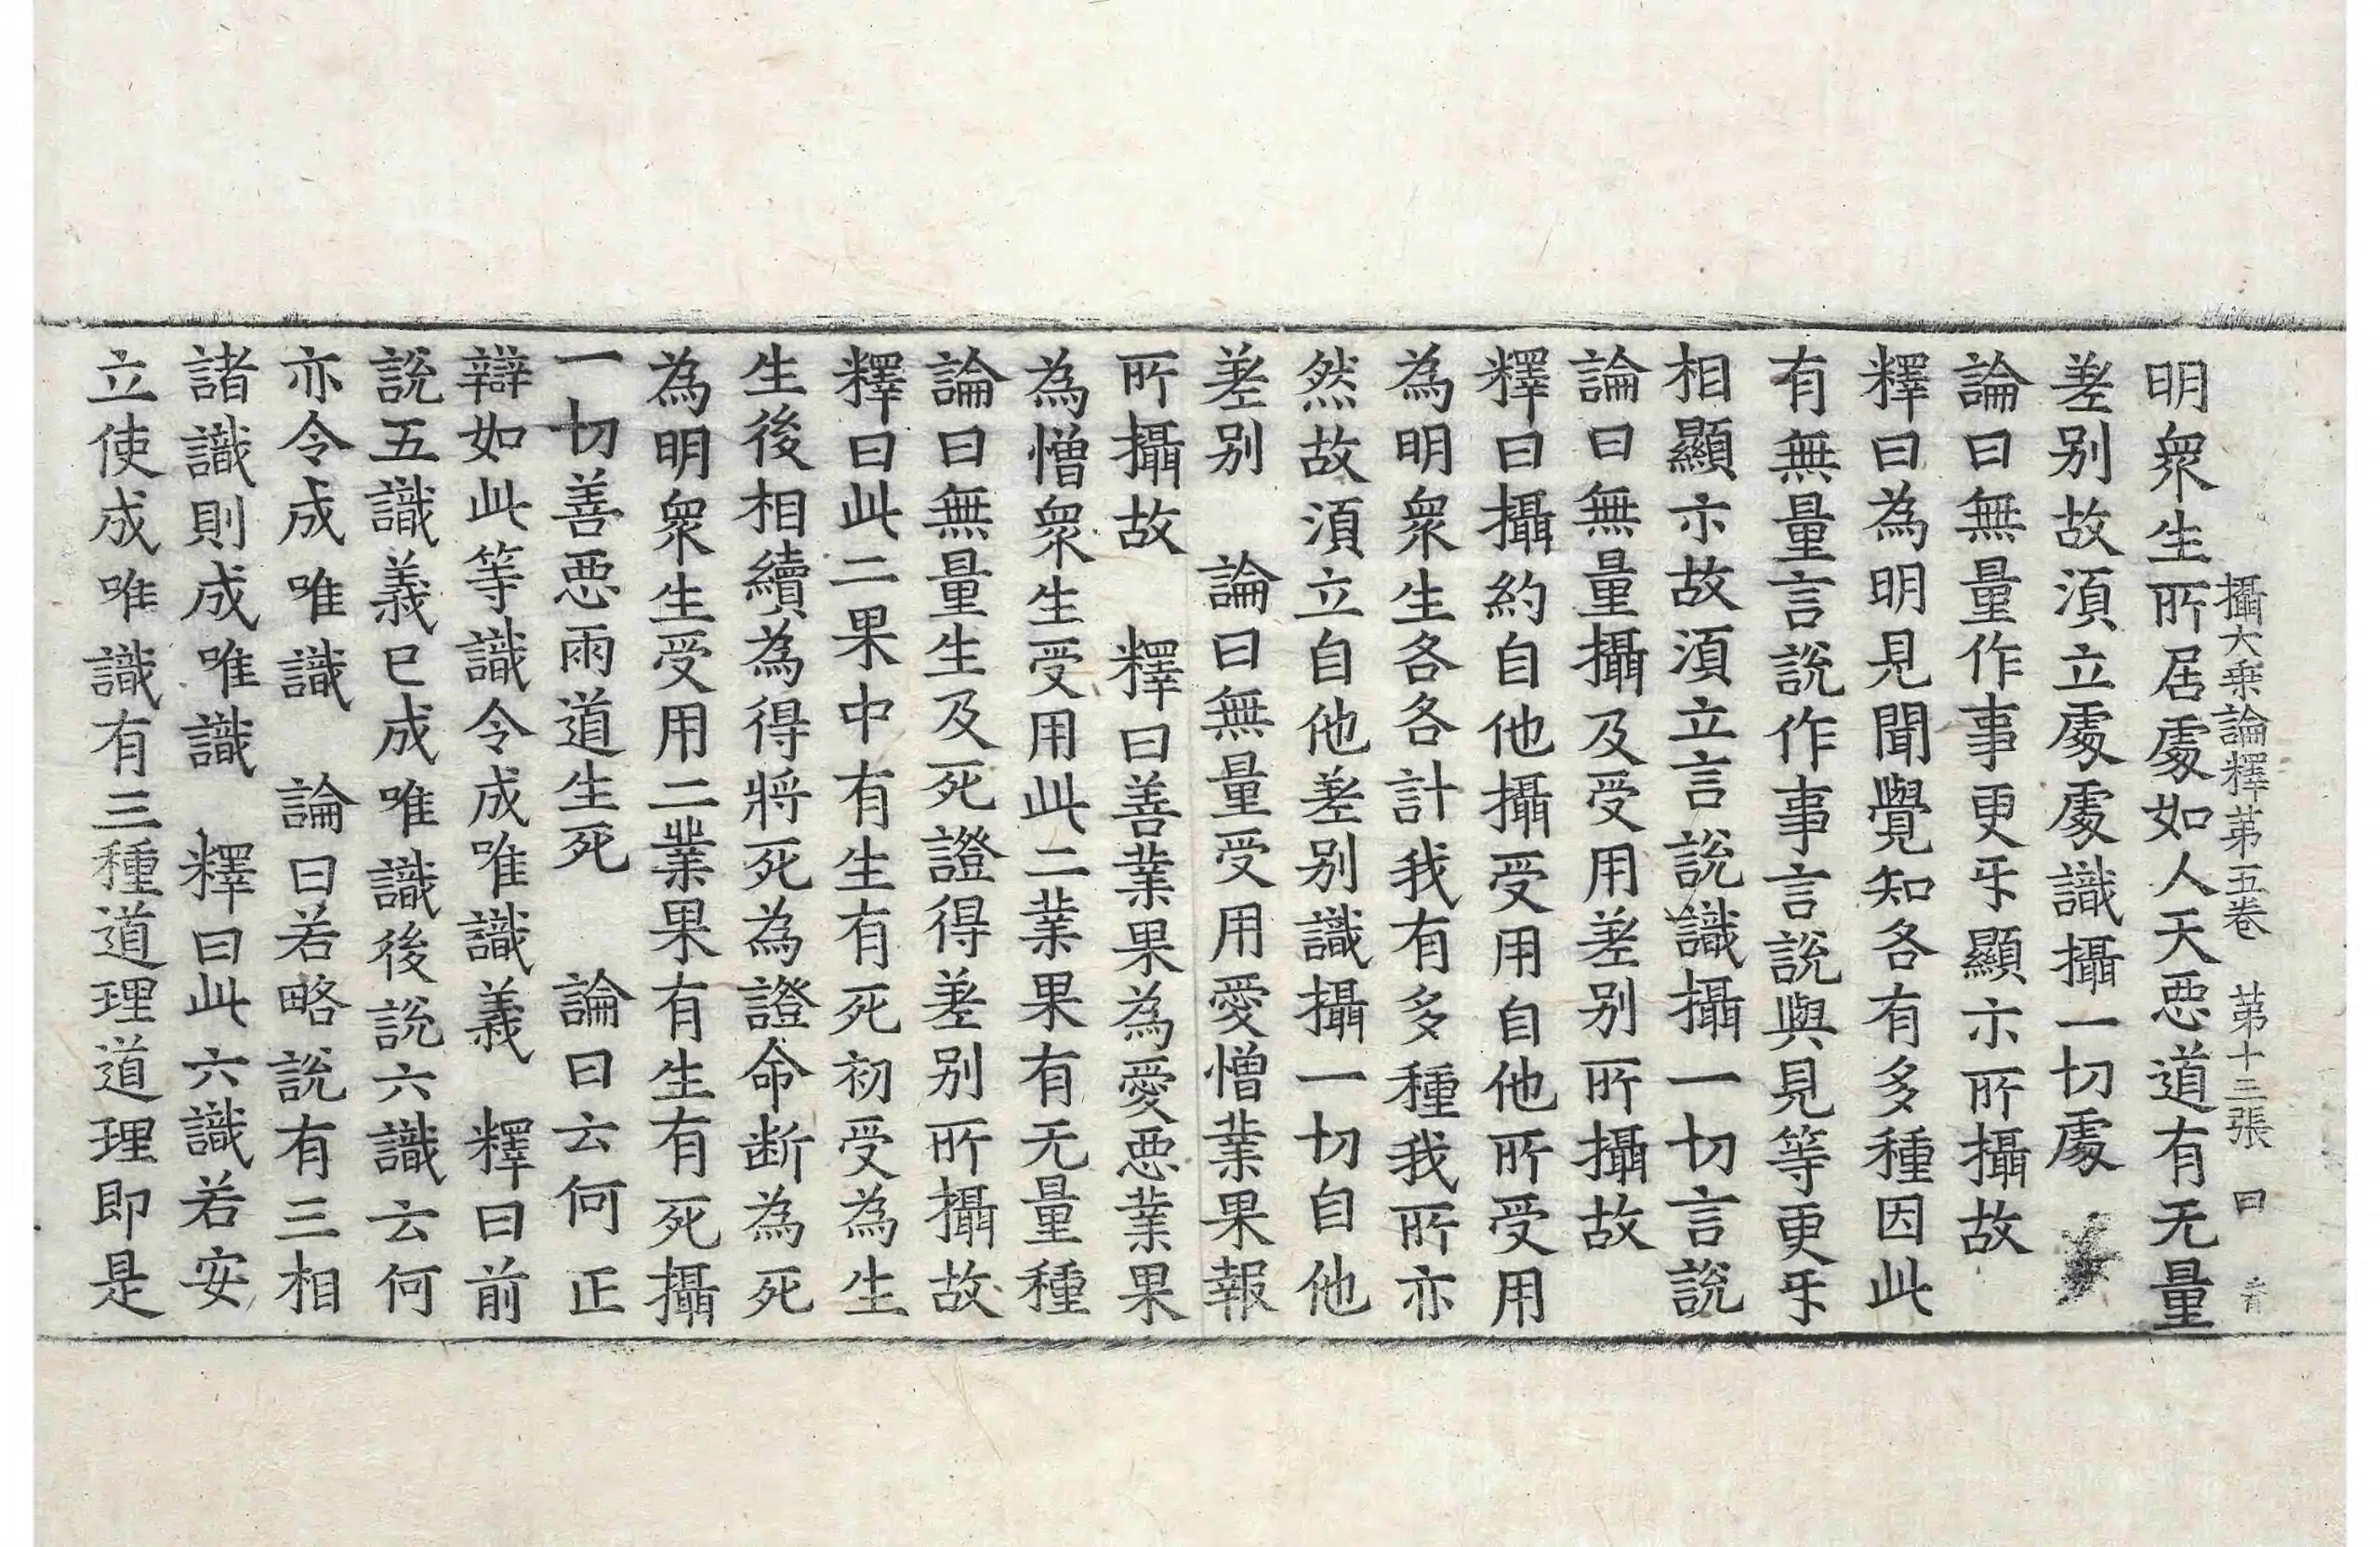 攝大乗論釋苐五卷　苐十三張　曰
明衆生所居處如人天惡道有无量
差别故湏立處處識攝一切處
論曰無量作事更㸦顯示所攝故
釋曰為明見聞覺知各有多種因此
有無量言說作事言說與見等更㸦
相顯示故湏立言說識攝一切言說
論曰無量攝及受用差别所攝故
釋曰攝約自他攝受用自他所受用
為明衆生各各計我有多種我所亦
然故湏立自他差别識攝一切自他
差别　論曰無量受用愛憎業果報
所攝故　釋曰善業果為愛惡業果
為憎衆生受用此二業果有无量種
論曰無量生及死證得差别所攝故
釋曰此二果中有生有死初受為生
生後相續為得將死為證命斷為死
為明衆生受用二業果有生有死攝
一切善惡兩道生死　論曰云何正
辯如此等識令成唯識義　釋曰前
說五識義已成唯識後說六識云何
亦令成唯識　論曰若略說有三相
諸識則成唯識　釋曰此六識若安
立使成唯識有三種道理道理即是